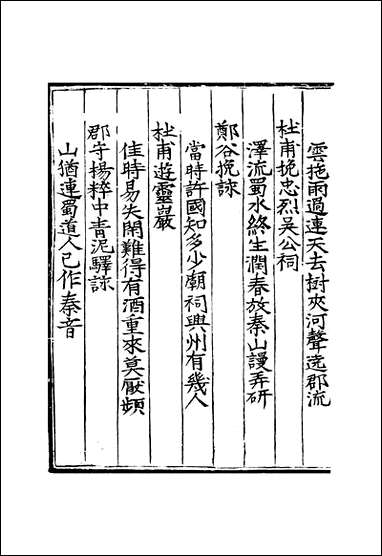 雲拖雨過連天去樹夾河聲迯郡流
杜甫挽忠烈吳公祠
澤流蜀水終生潤春放秦山謾弄研
鄭谷挽詠
當時許國知多少廟祠興州有幾人
杜甫遊靈巖
佳時易失閑難得有酒重來莫厭頻
郡守楊粹中青泥驛詠
山猶連蜀道人已作秦音